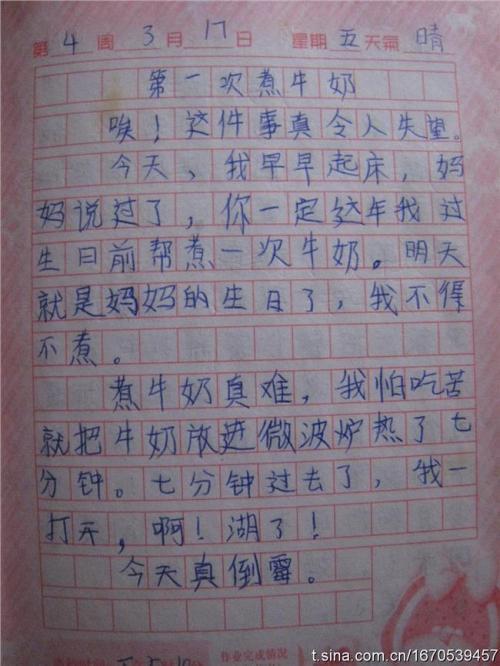 第 4 周 3 月 17 日 星期 五 天氣 晴
第一次煮牛奶
唉！这件事真令人失望。
今天，我早早起床，妈
妈说过了，你一定这年我过
生日前帮煮一次牛奶。明天
就是妈妈的生日了，我不得
不煮。
煮牛奶真难，我怕吃苦
就把牛奶放进微波炉热了七
分钟。七分钟过去了，我一
打开，啊！湖了！
今天真倒霉。
作业完成情况
t.sina.com.cn/1670539457